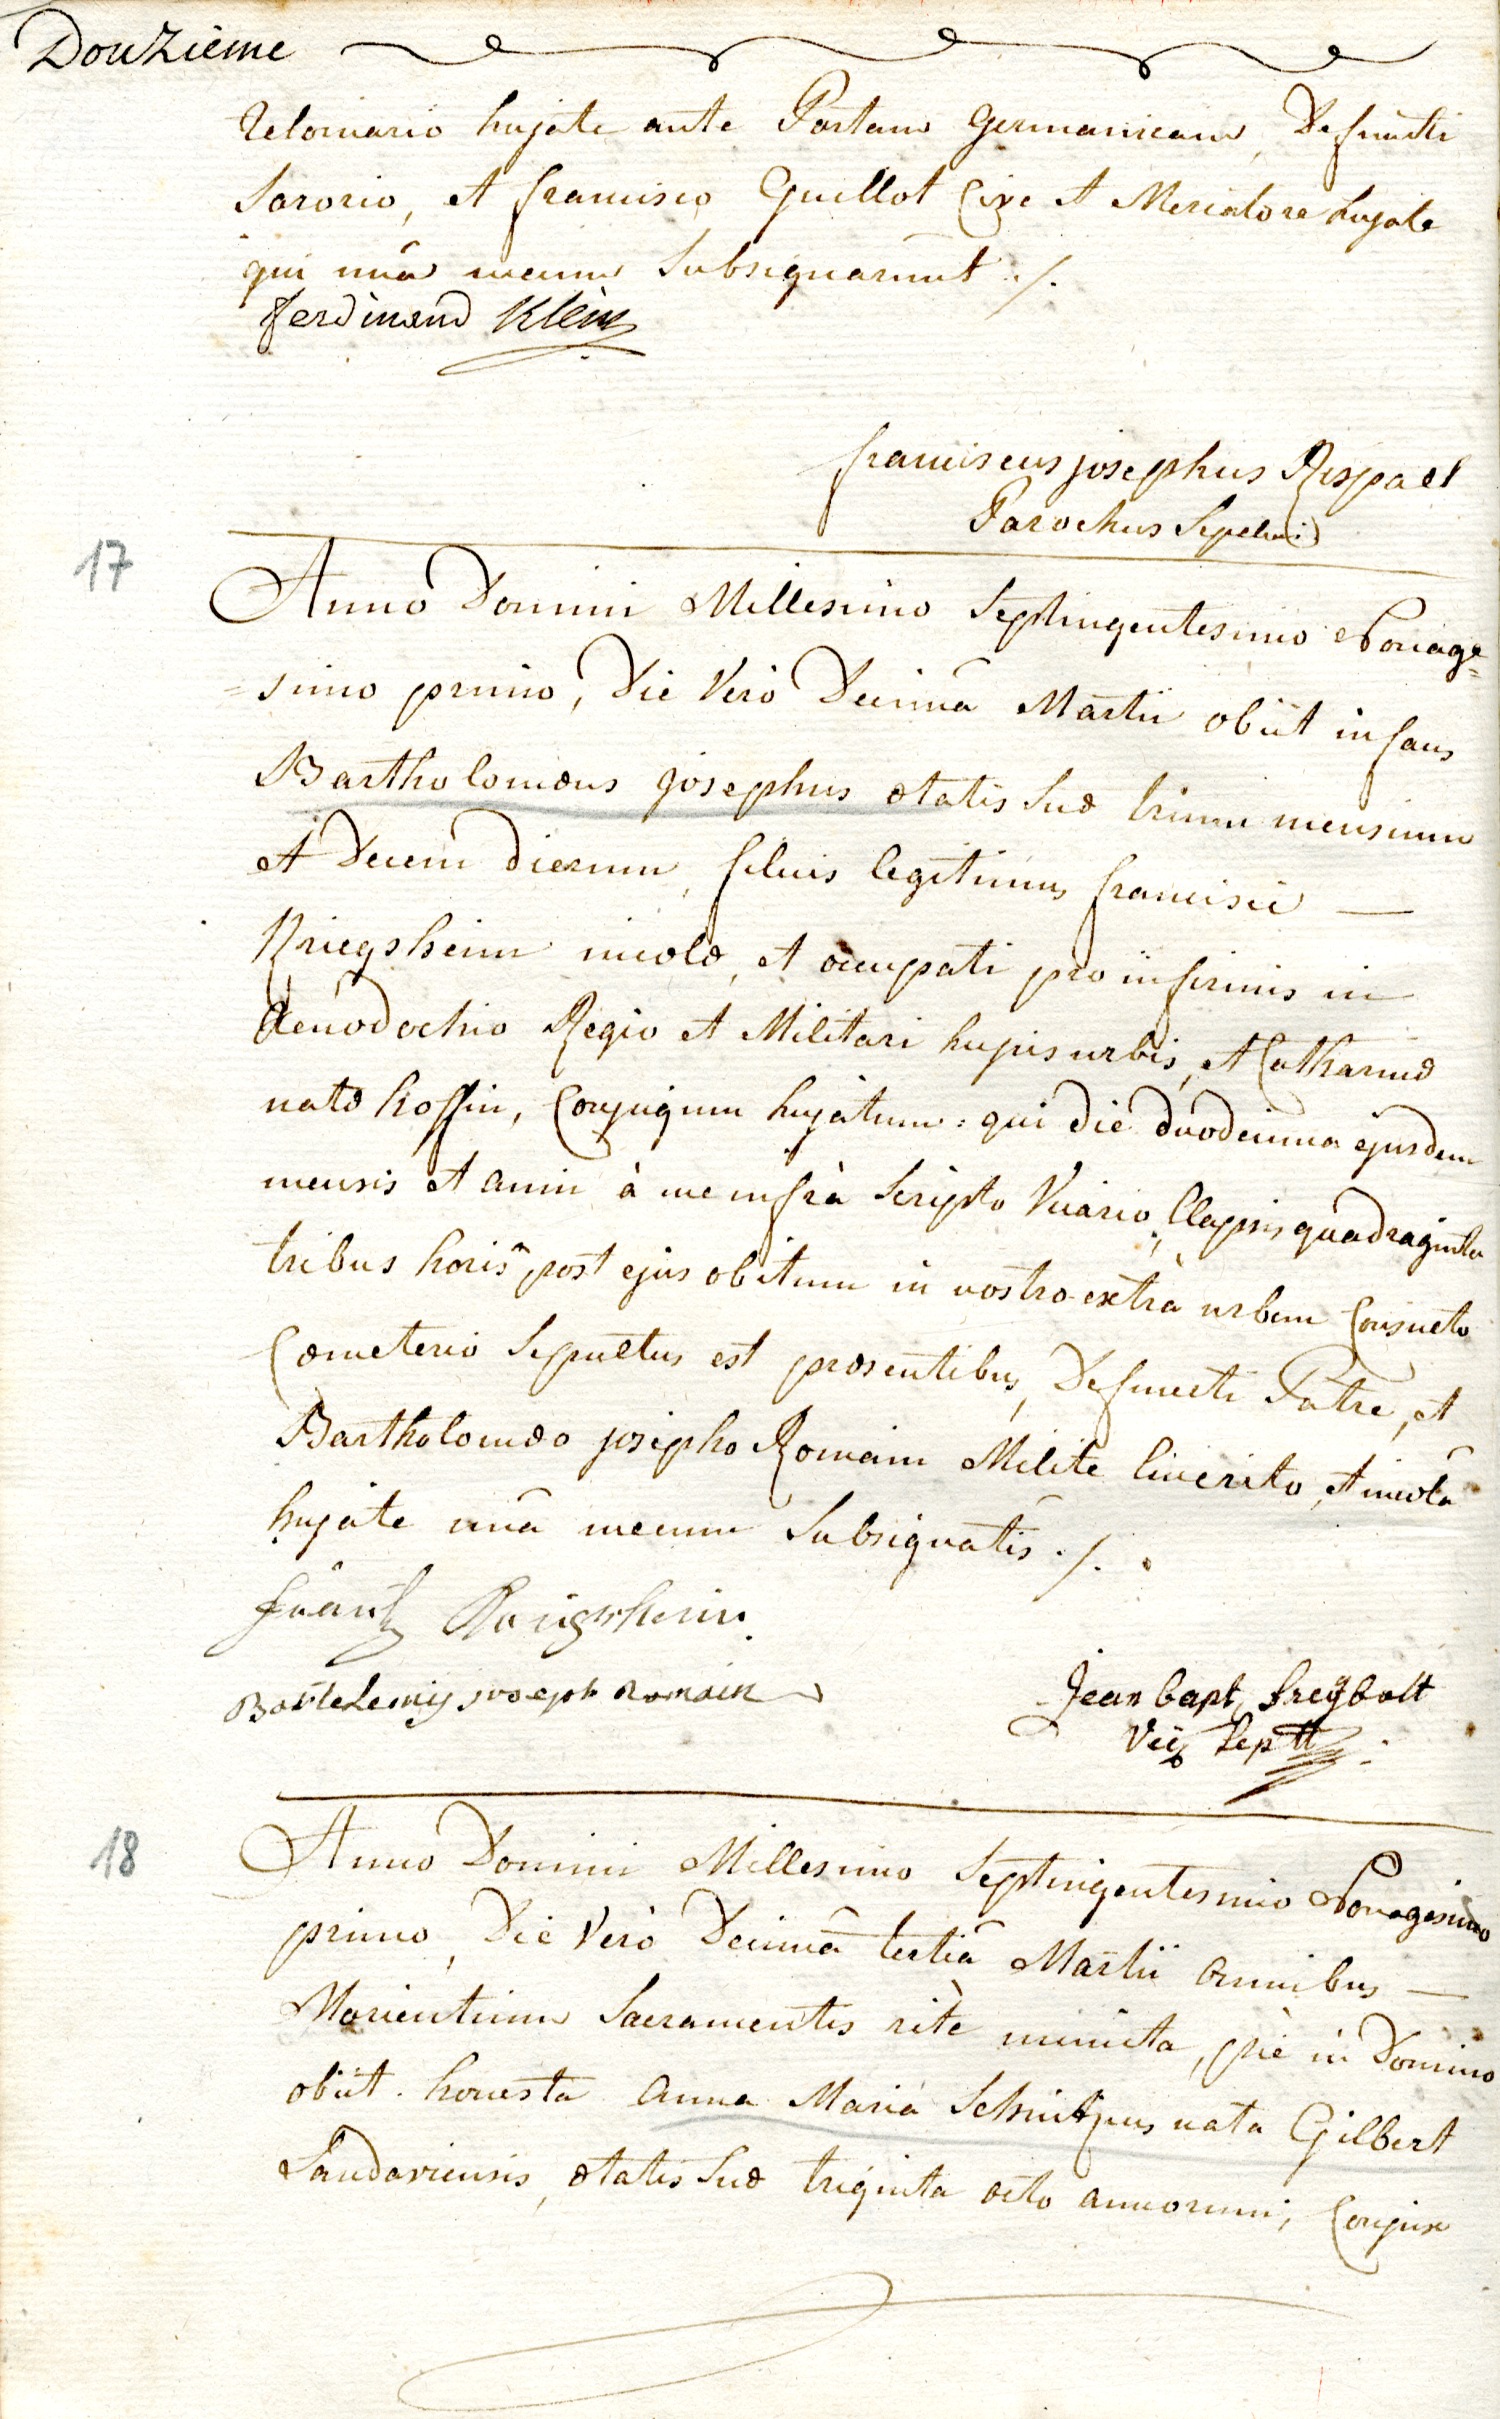 Douzième
Telonario hujate ante Portam Germanicam, Defuncti
Sororio, et francisco Guillot Cive et Mercatore hujate
qui unà mecum Subsignarunt ./.
ferdinand Klein
franciscus josephus Rispael
Parochus Sepelivi
17
Anno Domini Millesimo Septingentesimo Nonage=
=simo primo, Die Verò Decimâ Martii obiit infans
Bartholomæus josephus ætatis Suæ trium mensium
et Decem dierum, filius legitimus francisci —
Kriegsheim incolæ, et occupati pro infirmis in
Xenodochio Regio et Militari hujus urbis, et Catharinæ
natæ hoffin, Conjugum hujatum: qui die duodecima ejusdem
mensis et anni à me infrà Scripto Vicario, Elapsis quadraginta
tribus horis post ejus obitum in nostro extrà urbem Consueto
Cœmeterio Sepultus est præsentibus, Defuncti Patre, et
Bartholomæo josepho Romain Milite Emerito, et incolâ
hujate unâ mecum Subsignatis ./.
frantz Krigsheim
Bartelemij joseph Romain
Jean bapt freÿbott
Vic Sept
18
Anno Domini Millesimo Septingentesimo Nonagesimo
primo, Die Verò Decimâ tertiâ Martii omnibus —
Morientium Sacramentis ritè munita, piè in Domino
obiit honesta Anna Maria nata Gilbert
Landaviensis, ætatis Suæ triginta octo annorum; Conjux